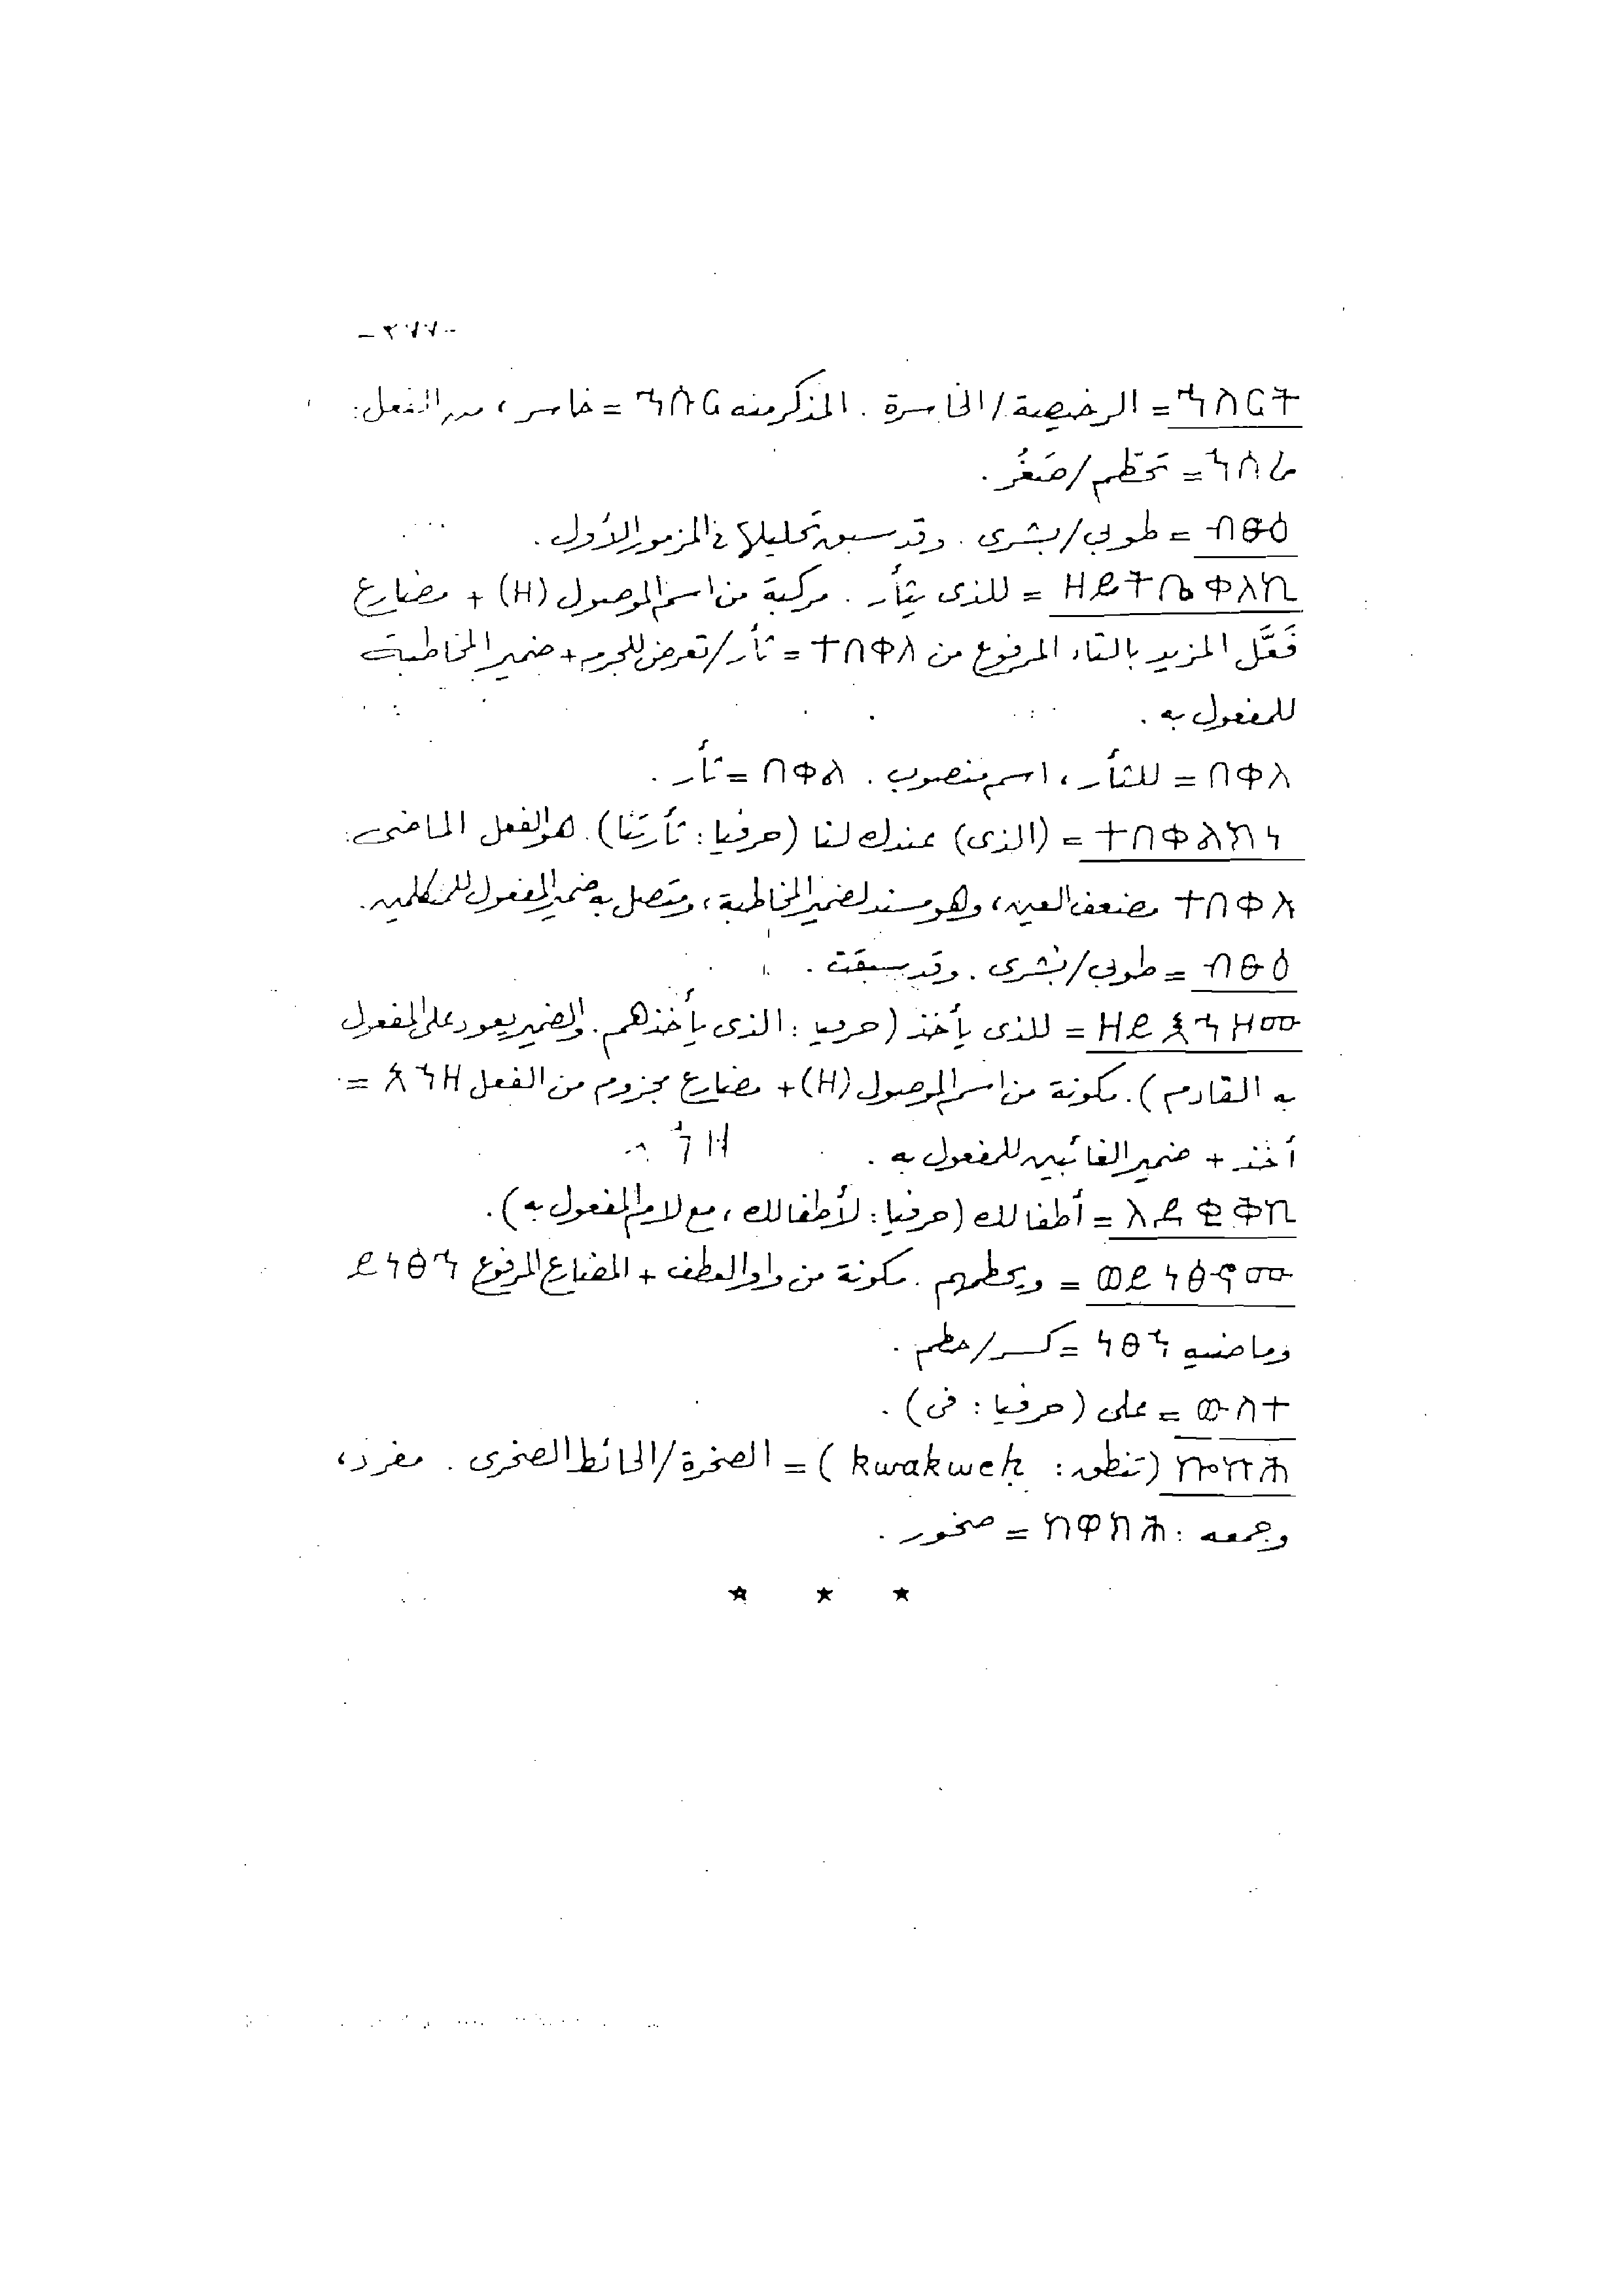 - ٢٧٧ -
ኅስርት = الرخيصة/الخاسرة . المذكر منه ኅሱር = خاسر ، من الفعل :
ኀስረ = تحَطّم/صَغُر .
ብፁዕ = طوبى/بشرى . وقد سبق تحليلها في المزمور الأول .
ዘይትቤቀለኪ = للذى يثأر . مركبة من اسم الموصول (ዘ) + مضارع
فَعَّل المزيد بالتاء المرفوع من ተበቀለ = ثأر/تعرض للجرم + ضمير المخاطبة
للمفعول به .
በቀለ = للثأر ، اسم منصوب . በቀል = ثأر .
ተበቀልክነ = (الذى) عندك لنا (حرفيا : ثأرتنا) . هو الفعل الماضى :
ተበቀለ مضعف العين ، وهو مسند لضمير المخاطبة ، ومتصل به ضمير المفعول للمتكلمين .
ብፁዕ = طوبى/بشرى . وقد سبقت .
ዘይእኅዞሙ = للذى يأخذ (حرفيا : الذى يأخذهم . والضمير يعود على المفعول
به القادم ) . مكونة من اسم الموصول (ዘ) + مضارع مجزوم من الفعل አኀዘ =
أخذ + ضمير الغائبين للمفعول به .
ለደቂቅኪ = أطفالك (حرفيا : لأطفالك ، مع لام المفعول به) .
ወይነፅኆሙ = ويحطمهم . مكونة من واو العطف + المضارع المرفوع ይነፅኅ
وماضيه ነፅኀ = كسر/حطم .
ውስተ = على (حرفيا : فى) .
ኰኵሕ (تنطق : kwakweḥ) = الصخرة/الحائط الصخرى . مفرد ،
وجمعه : ኰኵሕ = صخور .
★ ★ ★